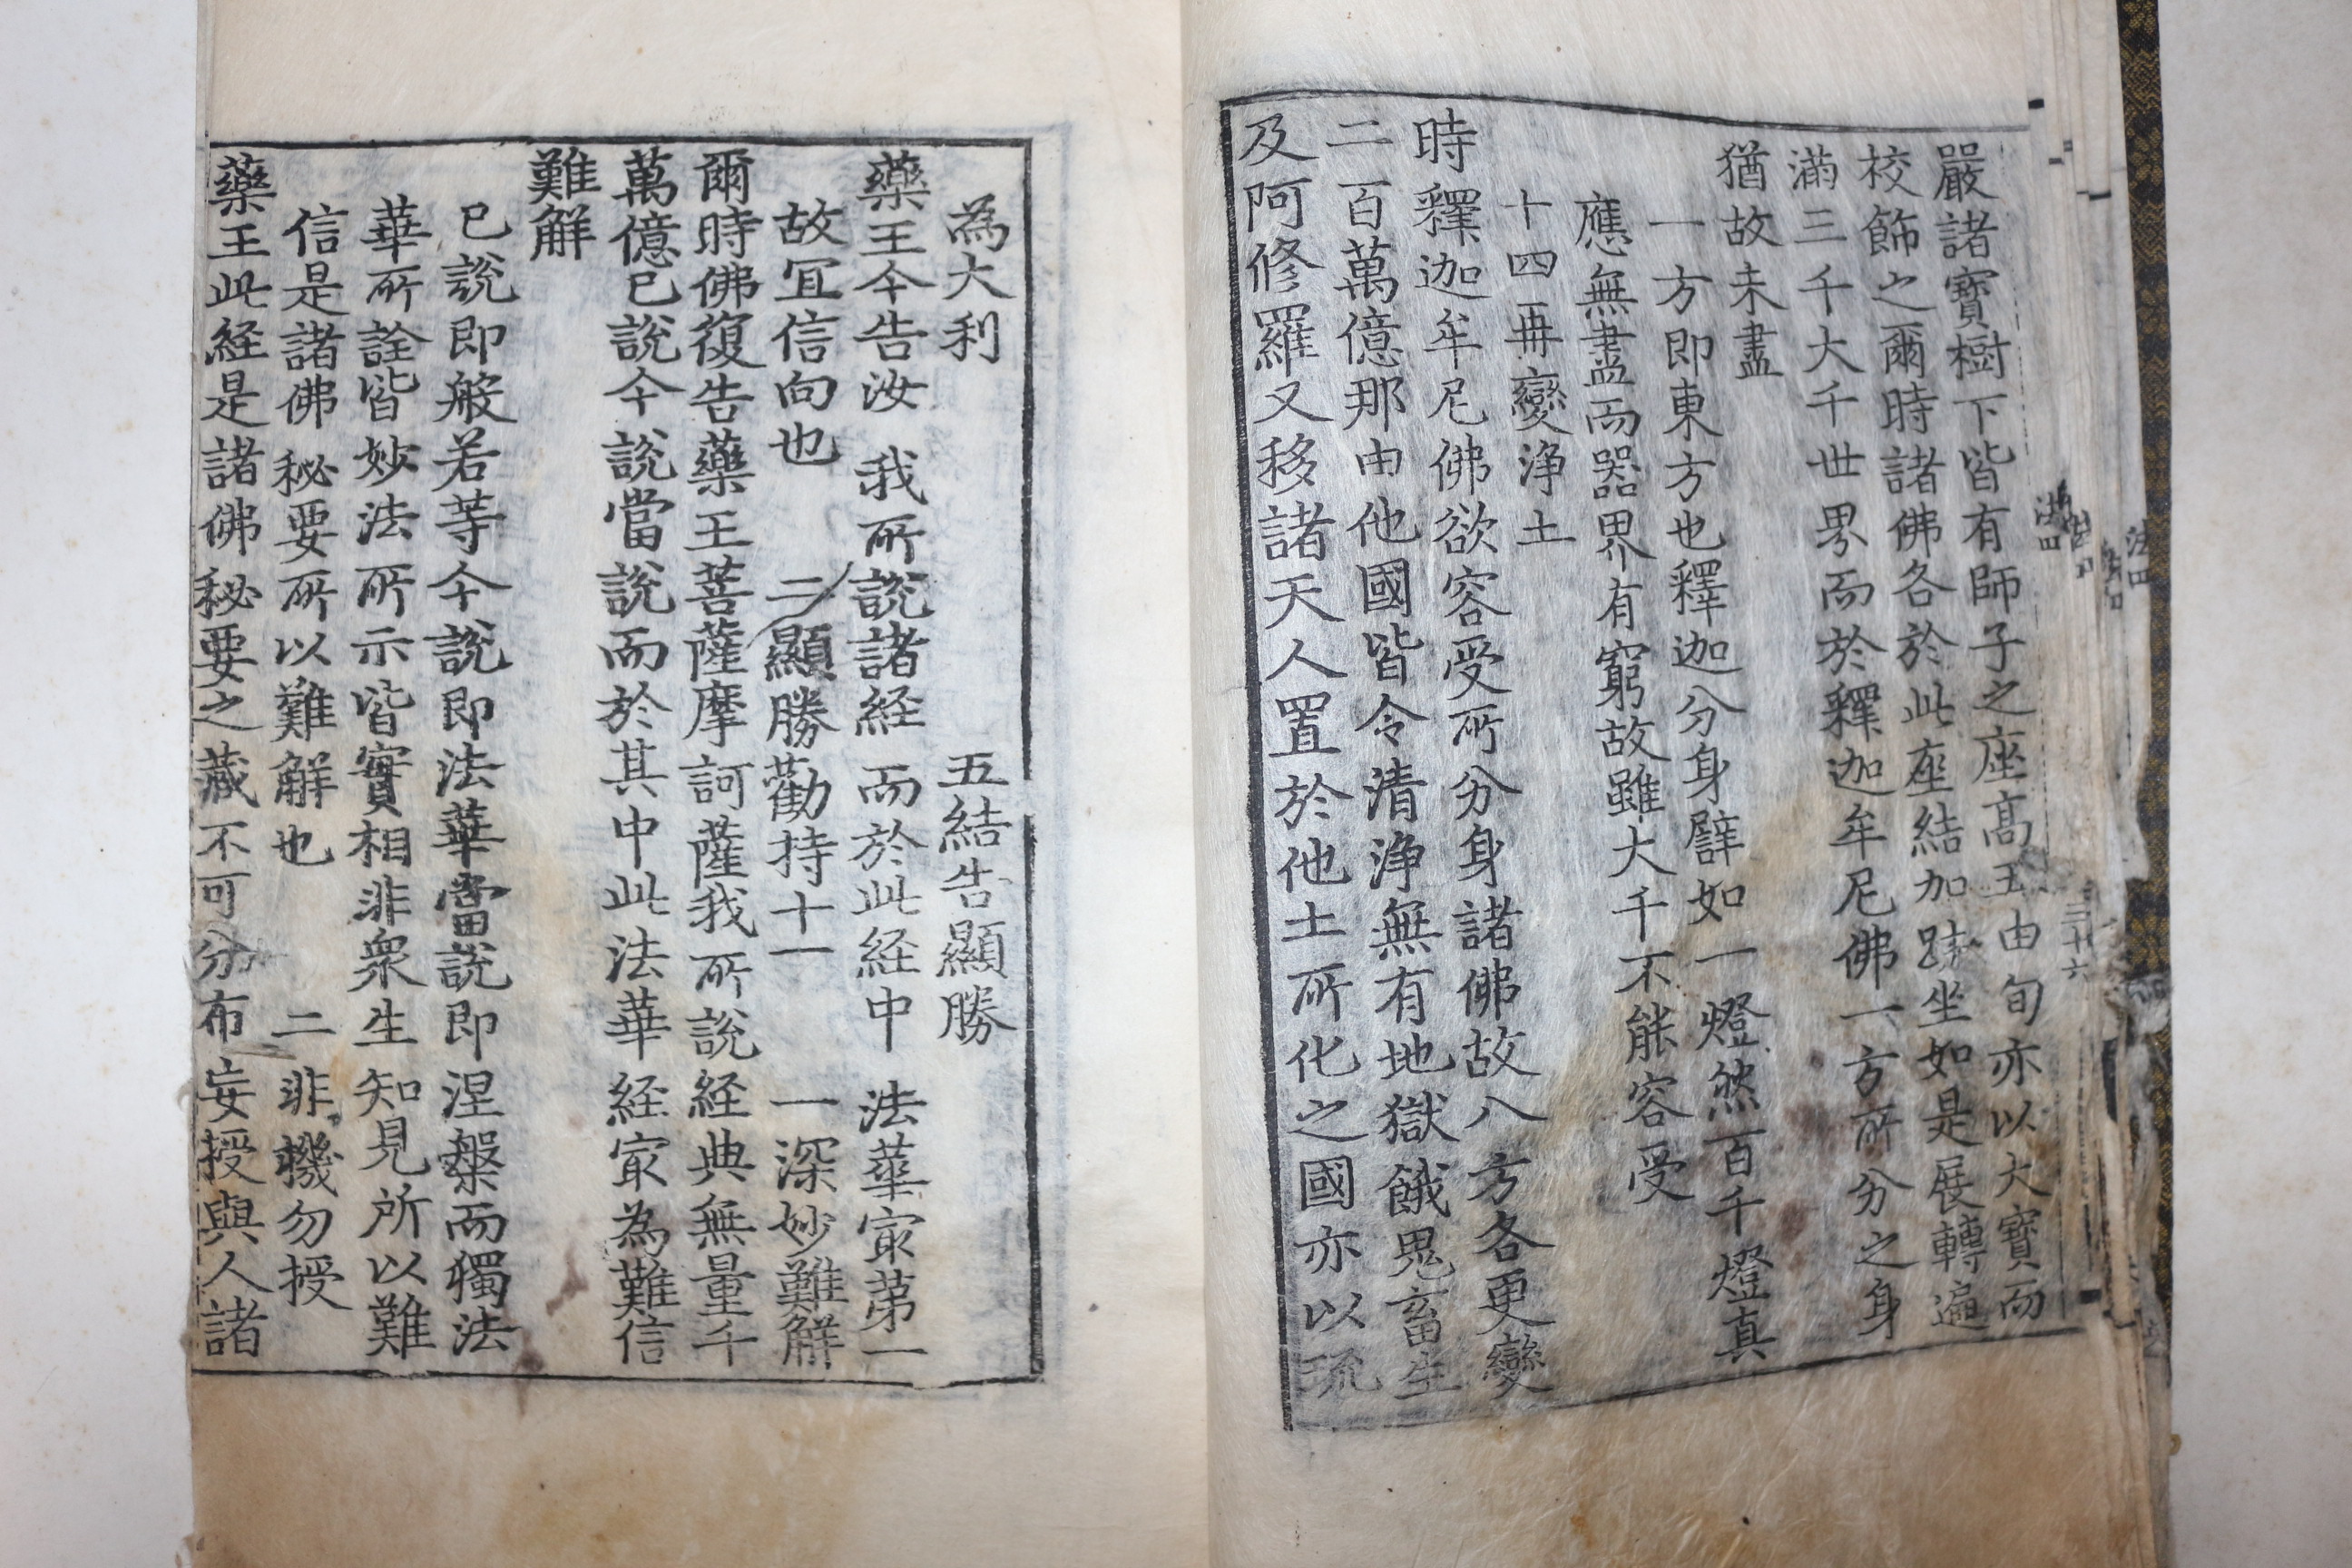 嚴諸寶樹下皆有師子之座高五由旬亦以大寶而
校飾之爾時諸佛各於此座結加趺坐如是展轉遍
滿三千大千世界而於釋迦牟尼佛一方所分之身
猶故未盡
一方即東方也釋迦分身譬如一燈然百千燈真
應無盡而器界有窮故雖大千不能容受
十四再變淨土
時釋迦牟尼佛欲容受所分身諸佛故八方各更變
二百萬億那由他國皆令清淨無有地獄餓鬼畜生
及阿修羅又移諸天人置於他土所化之國亦以琉
為大利 五結告顯勝
藥王今告汝 我所說諸経 而於此経中 法華㝡第一
故冝信向也 二顯勝勸持十一 一深妙難解
爾時佛復告藥王菩薩摩訶薩我所說経典無量千
萬億已說今說當說而於其中此法華経㝡為難信
難解
已說即般若等今說即法華當說即涅槃而獨法
華所詮皆妙法所示皆實相非衆生知見所以難
信是諸佛秘要所以難解也 二非機勿授
藥王此経是諸佛秘要之藏不可分布妄授與人諸
三十六
法四